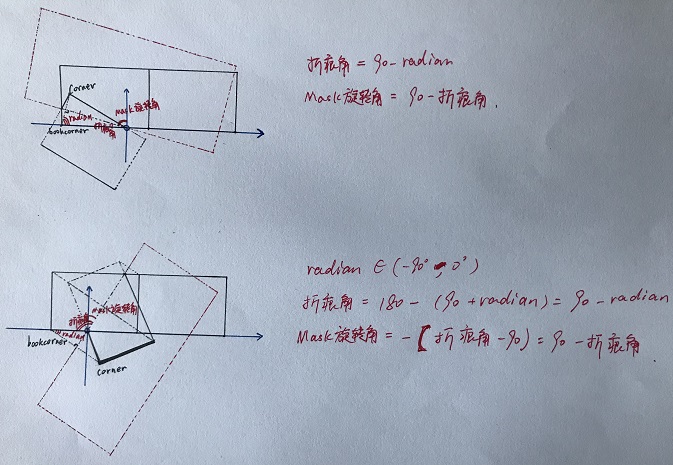 折痕角 = 90 - radian
Mask旋转角 = 90 - 折痕角.
corner
Mask旋转角
radian
折痕角
bookcorner
radian ∈ (-90°, 0°)
折痕角 = 180 - (90 + radian) = 90 - radian
Mask旋转角 = -[折痕角 - 90) = 90 - 折痕角.
折痕角
Mask旋转角
radian
bookcorner
corner